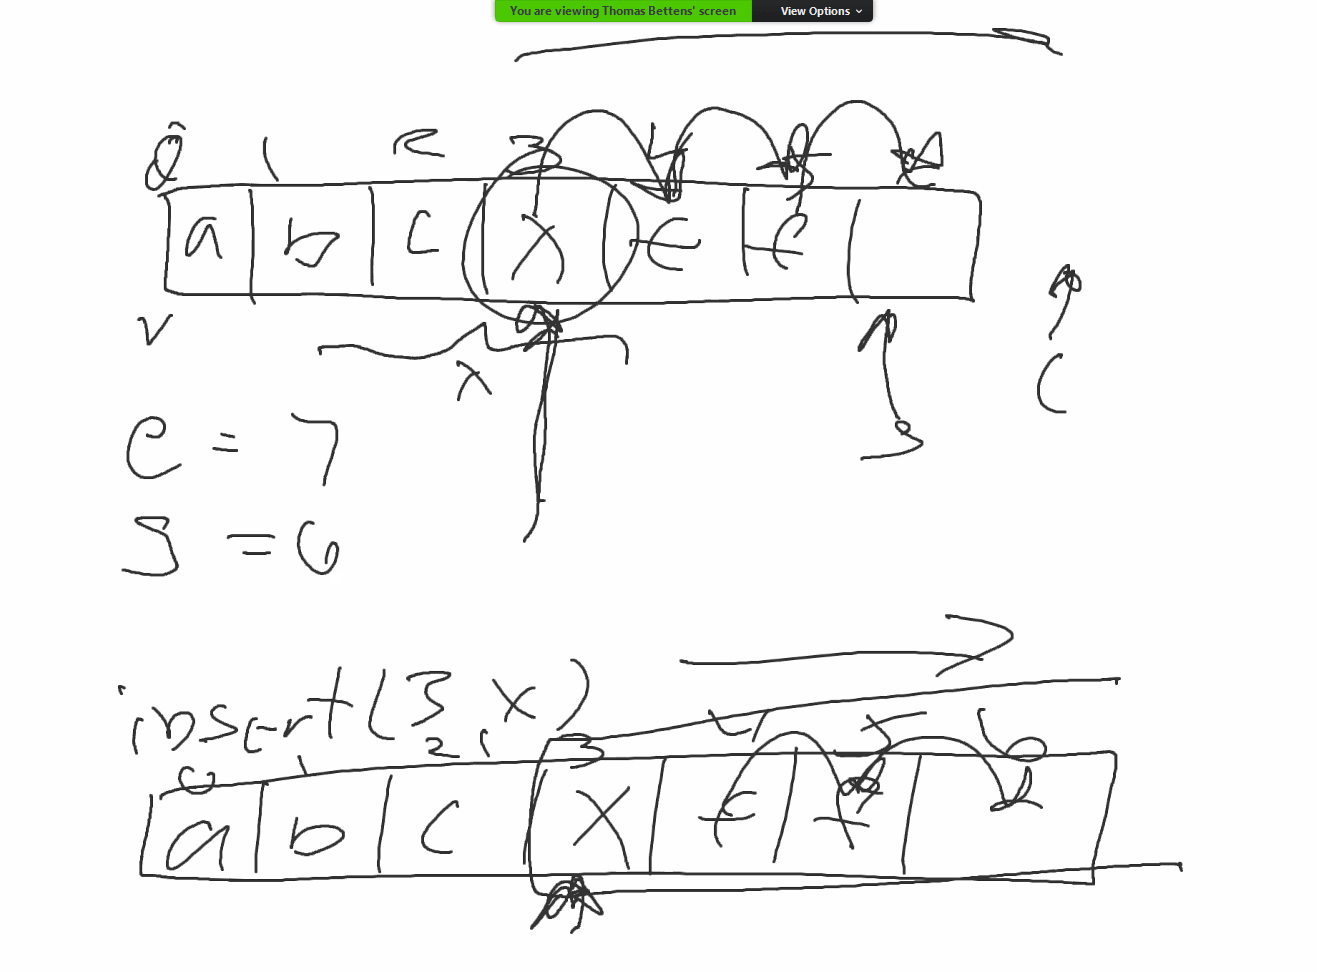 You are viewing Thomas Bettens' screen View Options
0 1 2 3 4 5
a b c x f f
v
x
c
c = 7
s
s = 6
insert(3, x)
0 1 2 3 4 5 6
a b c x f f